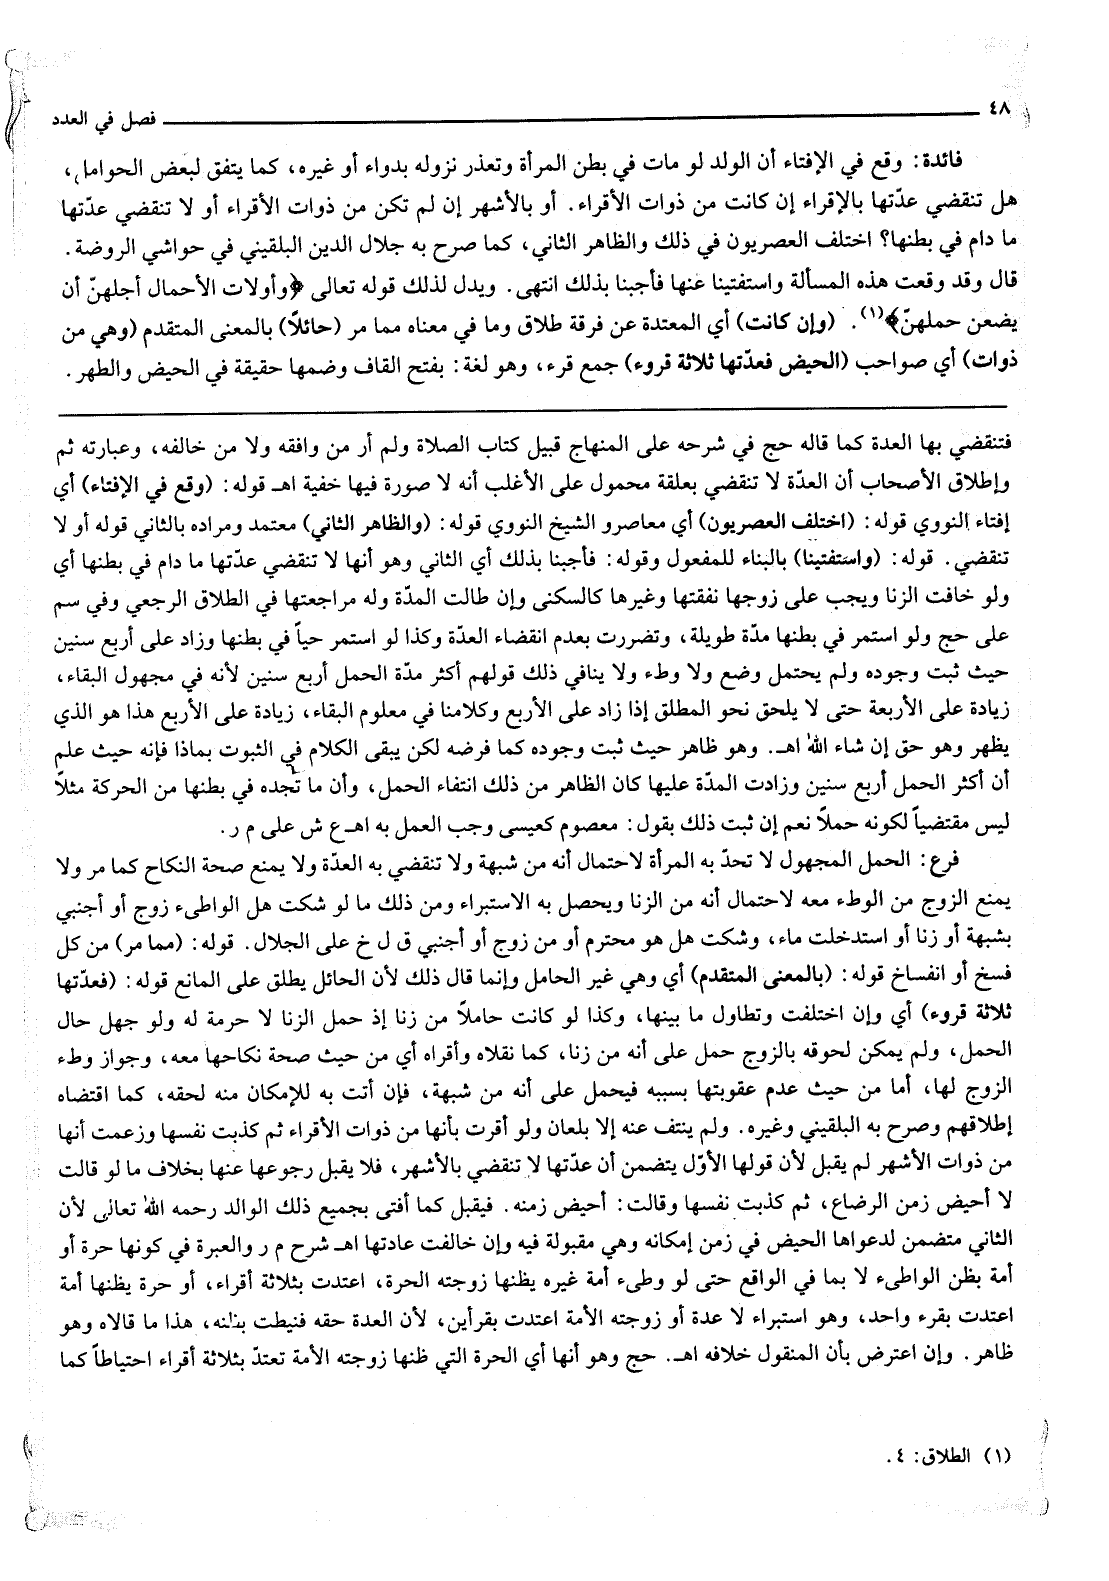 ٤٨
فصل في العدد
فائدة: وقع في الإفتاء أن الولد لو مات في بطن المرأة وتعذر نزوله بدواء أو غيره، كما يتفق لبعض الحوامل،
هل تنقضي عدّتها بالإقراء إن كانت من ذوات الأقراء. أو بالأشهر إن لم تكن من ذوات الأقراء أو لا تنقضي عدّتها
ما دام في بطنها؟ اختلف العصريون في ذلك والظاهر الثاني، كما صرح به جلال الدين البلقيني في حواشي الروضة.
قال وقد وقعت هذه المسألة واستفتينا عنها فأجبنا بذلك انتهى. ويدل لذلك قوله تعالى ﴿وأولات الأحمال أجلهنّ أن
يضعن حملهنّ﴾(١). (وإن كانت) أي المعتدة عن فرقة طلاق وما في معناه مما مر (حائلاً) بالمعنى المتقدم (وهي من
ذوات) أي صواحب (الحيض فعدّتها ثلاثة قروء) جمع قرء، وهو لغة: بفتح القاف وضمها حقيقة في الحيض والطهر.
فتنقضي بها العدة كما قاله حج في شرحه على المنهاج قبيل كتاب الصلاة ولم أر من وافقه ولا من خالفه، وعبارته ثم
وإطلاق الأصحاب أن العدّة لا تنقضي بعلقة محمول على الأغلب أنه لا صورة فيها خفية اهـ قوله: (وقع في الإفتاء) أي
إفتاء النووي قوله: (اختلف العصريون) أي معاصرو الشيخ النووي قوله: (والظاهر الثاني) معتمد ومراده بالثاني قوله أو لا
تنقضي. قوله: (واستفتينا) بالبناء للمفعول وقوله: فأجبنا بذلك أي الثاني وهو أنها لا تنقضي عدّتها ما دام في بطنها أي
ولو خافت الزنا ويجب على زوجها نفقتها وغيرها كالسكنى وإن طالت المدّة وله مراجعتها في الطلاق الرجعي وفي سم
على حج ولو استمر في بطنها مدّة طويلة، وتضررت بعدم انقضاء العدّة وكذا لو استمر حياً في بطنها وزاد على أربع سنين
حيث ثبت وجوده ولم يحتمل وضع ولا وطء ولا ينافي ذلك قولهم أكثر مدّة الحمل أربع سنين لأنه في مجهول البقاء،
زيادة على الأربعة حتى لا يلحق نحو المطلق إذا زاد على الأربع وكلامنا في معلوم البقاء، زيادة على الأربع هذا هو الذي
يظهر وهو حق إن شاء الله اهـ. وهو ظاهر حيث ثبت وجوده كما فرضه لكن يبقى الكلام في الثبوت بماذا فإنه حيث علم
أن أكثر الحمل أربع سنين وزادت المدّة عليها كان الظاهر من ذلك انتفاء الحمل، وأن ما تجده في بطنها من الحركة مثلاً
ليس مقتضياً لكونه حملاً نعم إن ثبت ذلك بقول: معصوم كعيسى وجب العمل به اهـ ع ش على م ر.
فرع: الحمل المجهول لا تحدّ به المرأة لاحتمال أنه من شبهة ولا تنقضي به العدّة ولا يمنع صحة النكاح كما مر ولا
يمنع الزوج من الوطء معه لاحتمال أنه من الزنا ويحصل به الاستبراء ومن ذلك ما لو شكت هل الواطىء زوج أو أجنبي
بشبهة أو زنا أو استدخلت ماء، وشكت هل هو محترم أو من زوج أو أجنبي ق ل خ على الجلال. قوله: (مما مر) من كل
فسخ أو انفساخ قوله: (بالمعنى المتقدم) أي وهي غير الحامل وإنما قال ذلك لأن الحائل يطلق على المانع قوله: (فعدّتها
ثلاثة قروء) أي وإن اختلفت وتطاول ما بينها، وكذا لو كانت حاملاً من زنا إذ حمل الزنا لا حرمة له ولو جهل حال
الحمل، ولم يمكن لحوقه بالزوج حمل على أنه من زنا، كما نقلاه وأقراه أي من حيث صحة نكاحها معه، وجواز وطء
الزوج لها، أما من حيث عدم عقوبتها بسببه فيحمل على أنه من شبهة، فإن أتت به للإمكان منه لحقه، كما اقتضاه
إطلاقهم وصرح به البلقيني وغيره. ولم ينتف عنه إلا بلعان ولو أقرت بأنها من ذوات الأقراء ثم كذبت نفسها وزعمت أنها
من ذوات الأشهر لم يقبل لأن قولها الأوّل يتضمن أن عدّتها لا تنقضي بالأشهر، فلا يقبل رجوعها عنها بخلاف ما لو قالت
لا أحيض زمن الرضاع، ثم كذبت نفسها وقالت: أحيض زمنه. فيقبل كما أفتى بجميع ذلك الوالد رحمه الله تعالى لأن
الثاني متضمن لدعواها الحيض في زمن إمكانه وهي مقبولة فيه وإن خالفت عادتها اهـ شرح م ر والعبرة في كونها حرة أو
أمة بظن الواطىء لا بما في الواقع حتى لو وطىء أمة غيره يظنها زوجته الحرة، اعتدت بثلاثة أقراء، أو حرة يظنها أمة
اعتدت بقرء واحد، وهو استبراء لا عدة أو زوجته الأمة اعتدت بقرأين، لأن العدة حقه فنيطت بظنه، هذا ما قالاه وهو
ظاهر. وإن اعترض بأن المنقول خلافه اهـ. حج وهو أنها أي الحرة التي ظنها زوجته الأمة تعتدّ بثلاثة أقراء احتياطاً كما
(١) الطلاق: ٤.